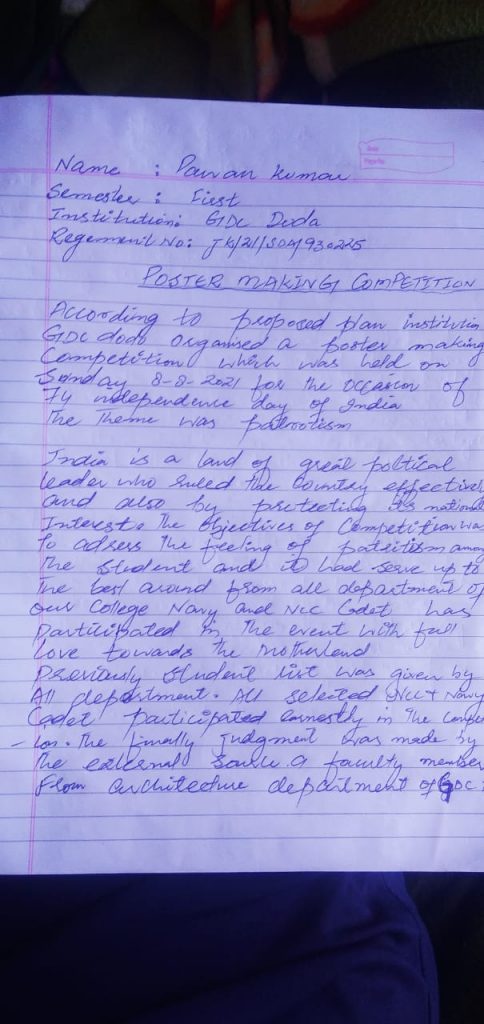 Name : Pawan Kumar
Semester : First
Institution: GDC Doda
Regement No: JK/21/SDA/930225
POSTER MAKING COMPETITION
According to proposed plan institution
GDC dodo organised a poster making
Competition which was held on
Sunday 8-8-2021 for the occasion of
74 independence day of India
The Theme was patrotism
India is a land of great political
leader who ruled the country effectively
and also by protecting its national
Interest. The objectives of Competition was
To adress the feeling of patritism among
The student and it had serve up to
The best around from all department of
our College Navy and Ncc Cadet has
Participated in The event with full
love towards the motherland
Previously student list was given by
All department. All selected Ncc + Navy
Cadet participated earnestly in The Compet
- ion. The finally Judgment was made by
The external source a faculty member
From architecture department of GDC